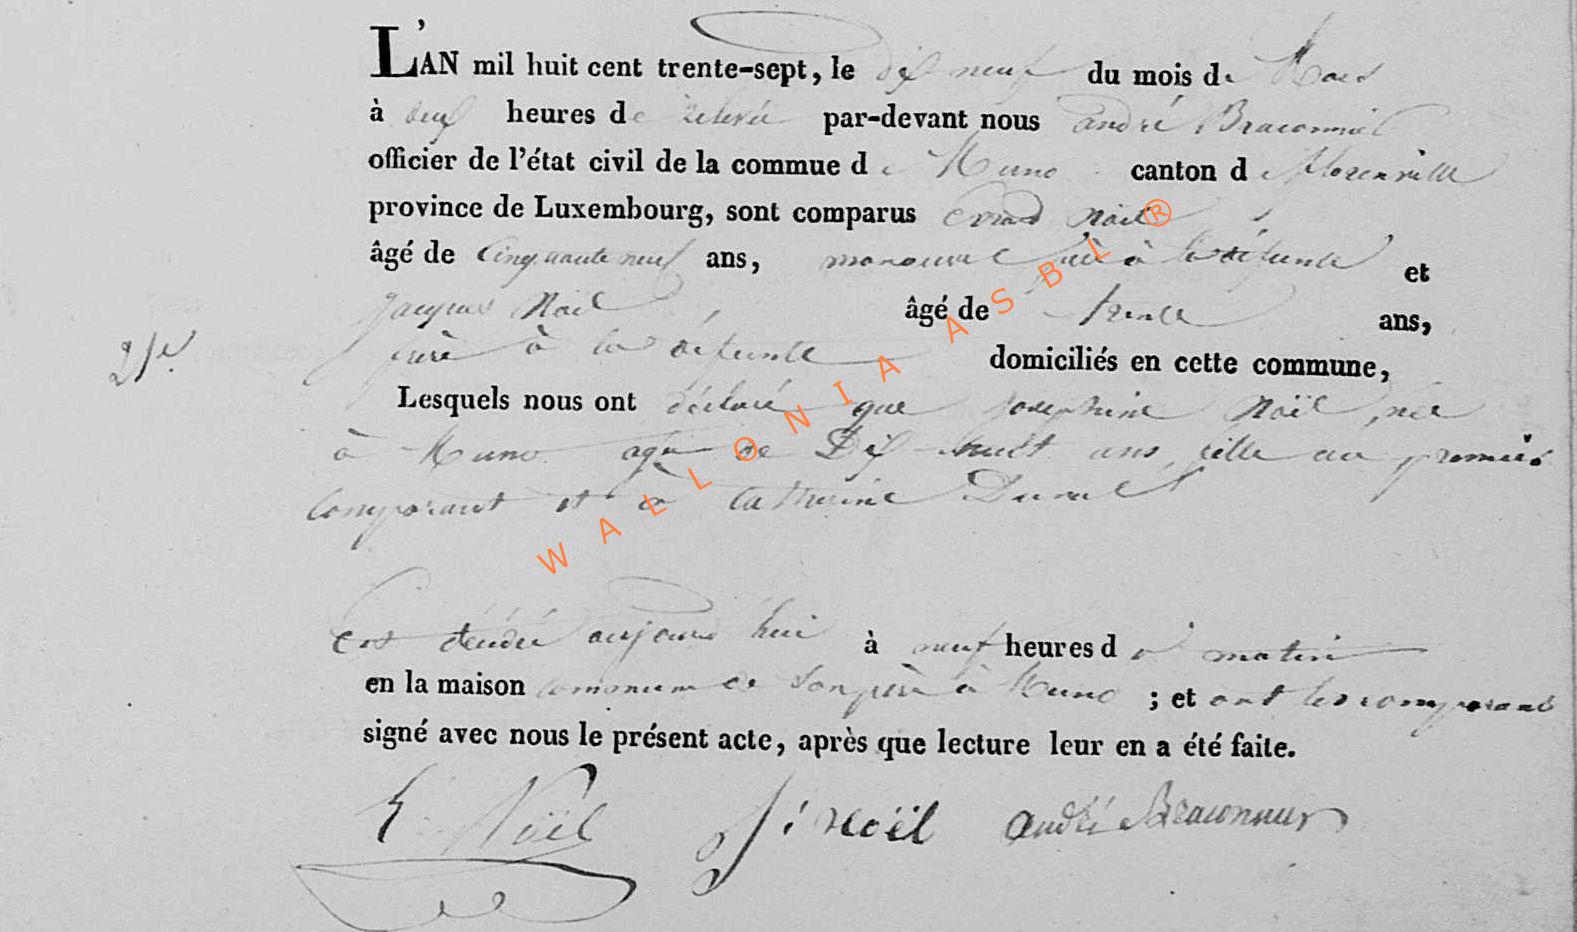 L'AN mil huit cent trente-sept, le dix neuf du mois de Mars
à deux heures de relevée par-devant nous andré Braconnier
officier de l'état civil de la commue de Muno canton de florenville
province de Luxembourg, sont comparus Noël
âgé de Cinquante neuf ans, père à la défunte et
jacques Noël âgé de trente ans,
21e frère à la défunte domiciliés en cette commune,
Lesquels nous ont déclaré que josephine Noël, née
à Muno agée de Dix huit ans, fille au premier
comparant et à Catherine
Est décédée aujourd'hui à neuf heures du matin
en la maison de son père à Muno ; et ont les comparants
signé avec nous le présent acte, après que lecture leur en a été faite.
E. Noël J. Noël andré Braconnier
WALLONIA ASBL ®